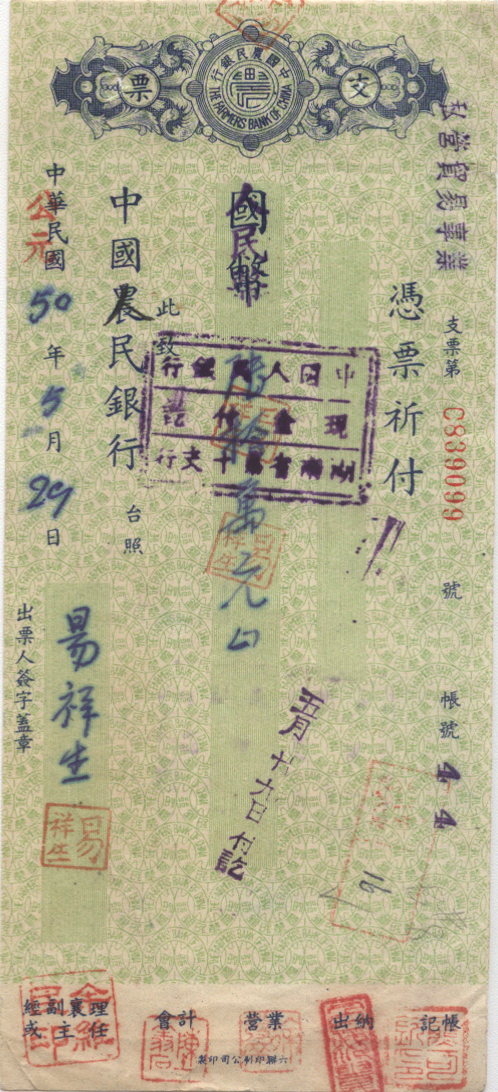 中國農民銀行
THE FARMERS BANK OF CHINA
支票
私營貿易事業
支票第 C839099 號
帳號 44
憑票祈付
國幣
人民
萬元
中國人民銀行
現金付訖
五月廿九日付訖
此致
中國農民銀行 台照
中華民國 50 年 5 月 29 日
公元
易祥生
出票人簽字蓋章
易祥生
記帳
出納
營業
會計
經副襄理
或主任
六聯印刷公司印製